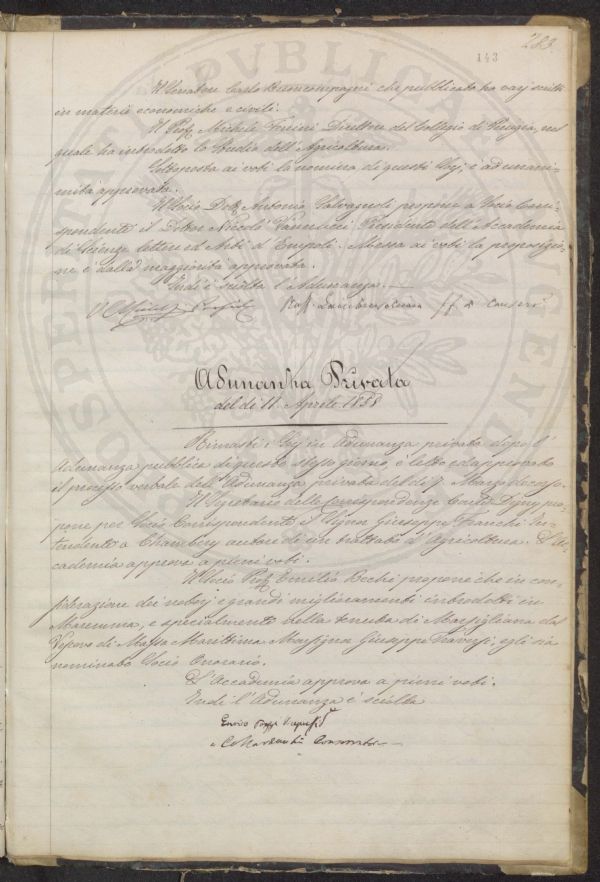 283.
143
Il Senatore Carlo Buoncompagni che pubblicato ha varj scritti
in materie economiche e civili.
Il Prof. Michele Direttore del Collegio di Perugia, nel
quale ha introdotto lo studio dell'Agricoltura.
Sottoposta ai voti la nomina di questi Sigj. è ad unani-
mità approvata.
Il Socio Dott. Antonio Salvagnoli propone a Socio Corri-
spondente il Dottor Niccolò Vannucci Presidente dell'Accademia
di Scienze lettere ed Arti d'Empoli. Messa ai voti la proposizio-
ne è dalla maggiorità approvata.
Indi è sciolta l'Adunanza.
ff. di
Adunanza Privata
del dì 11. Aprile 1858
Rimasti i Sigj. in Adunanza privata dopo l'
Adunanza pubblica di questo stesso giorno, è letto ed approvato
il processo verbale dell'Adunanza privata del dì 7. Marzo decorso.
Il Segretario delle Corrispondenze Cambray Digny pro-
pone per Socio Corrispondente il Signor Giuseppe Franchi In-
tendente a Chambery autore di un trattato d'Agricoltura. L'Ac-
cademia approva a pieni voti.
Il Socio Prof. Emilio Bechi propone che in con-
siderazione dei notevoli e grandi miglioramenti introdotti in
Maremma, e specialmente nella tenuta di Marsigliana dal
Vescovo di Massa Marittima Monsignor Giuseppe Traversi, egli sia
nominato Socio Onorario.
L'Accademia approva a pieni voti.
Indi l'Adunanza è sciolta
Enrico Poggi